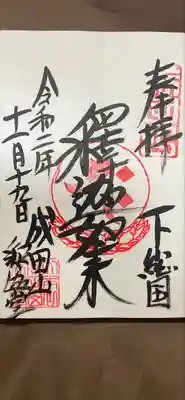 奉拝
下総国
釋迦如来
令和二年
十一月十九日
成田山
釈迦堂